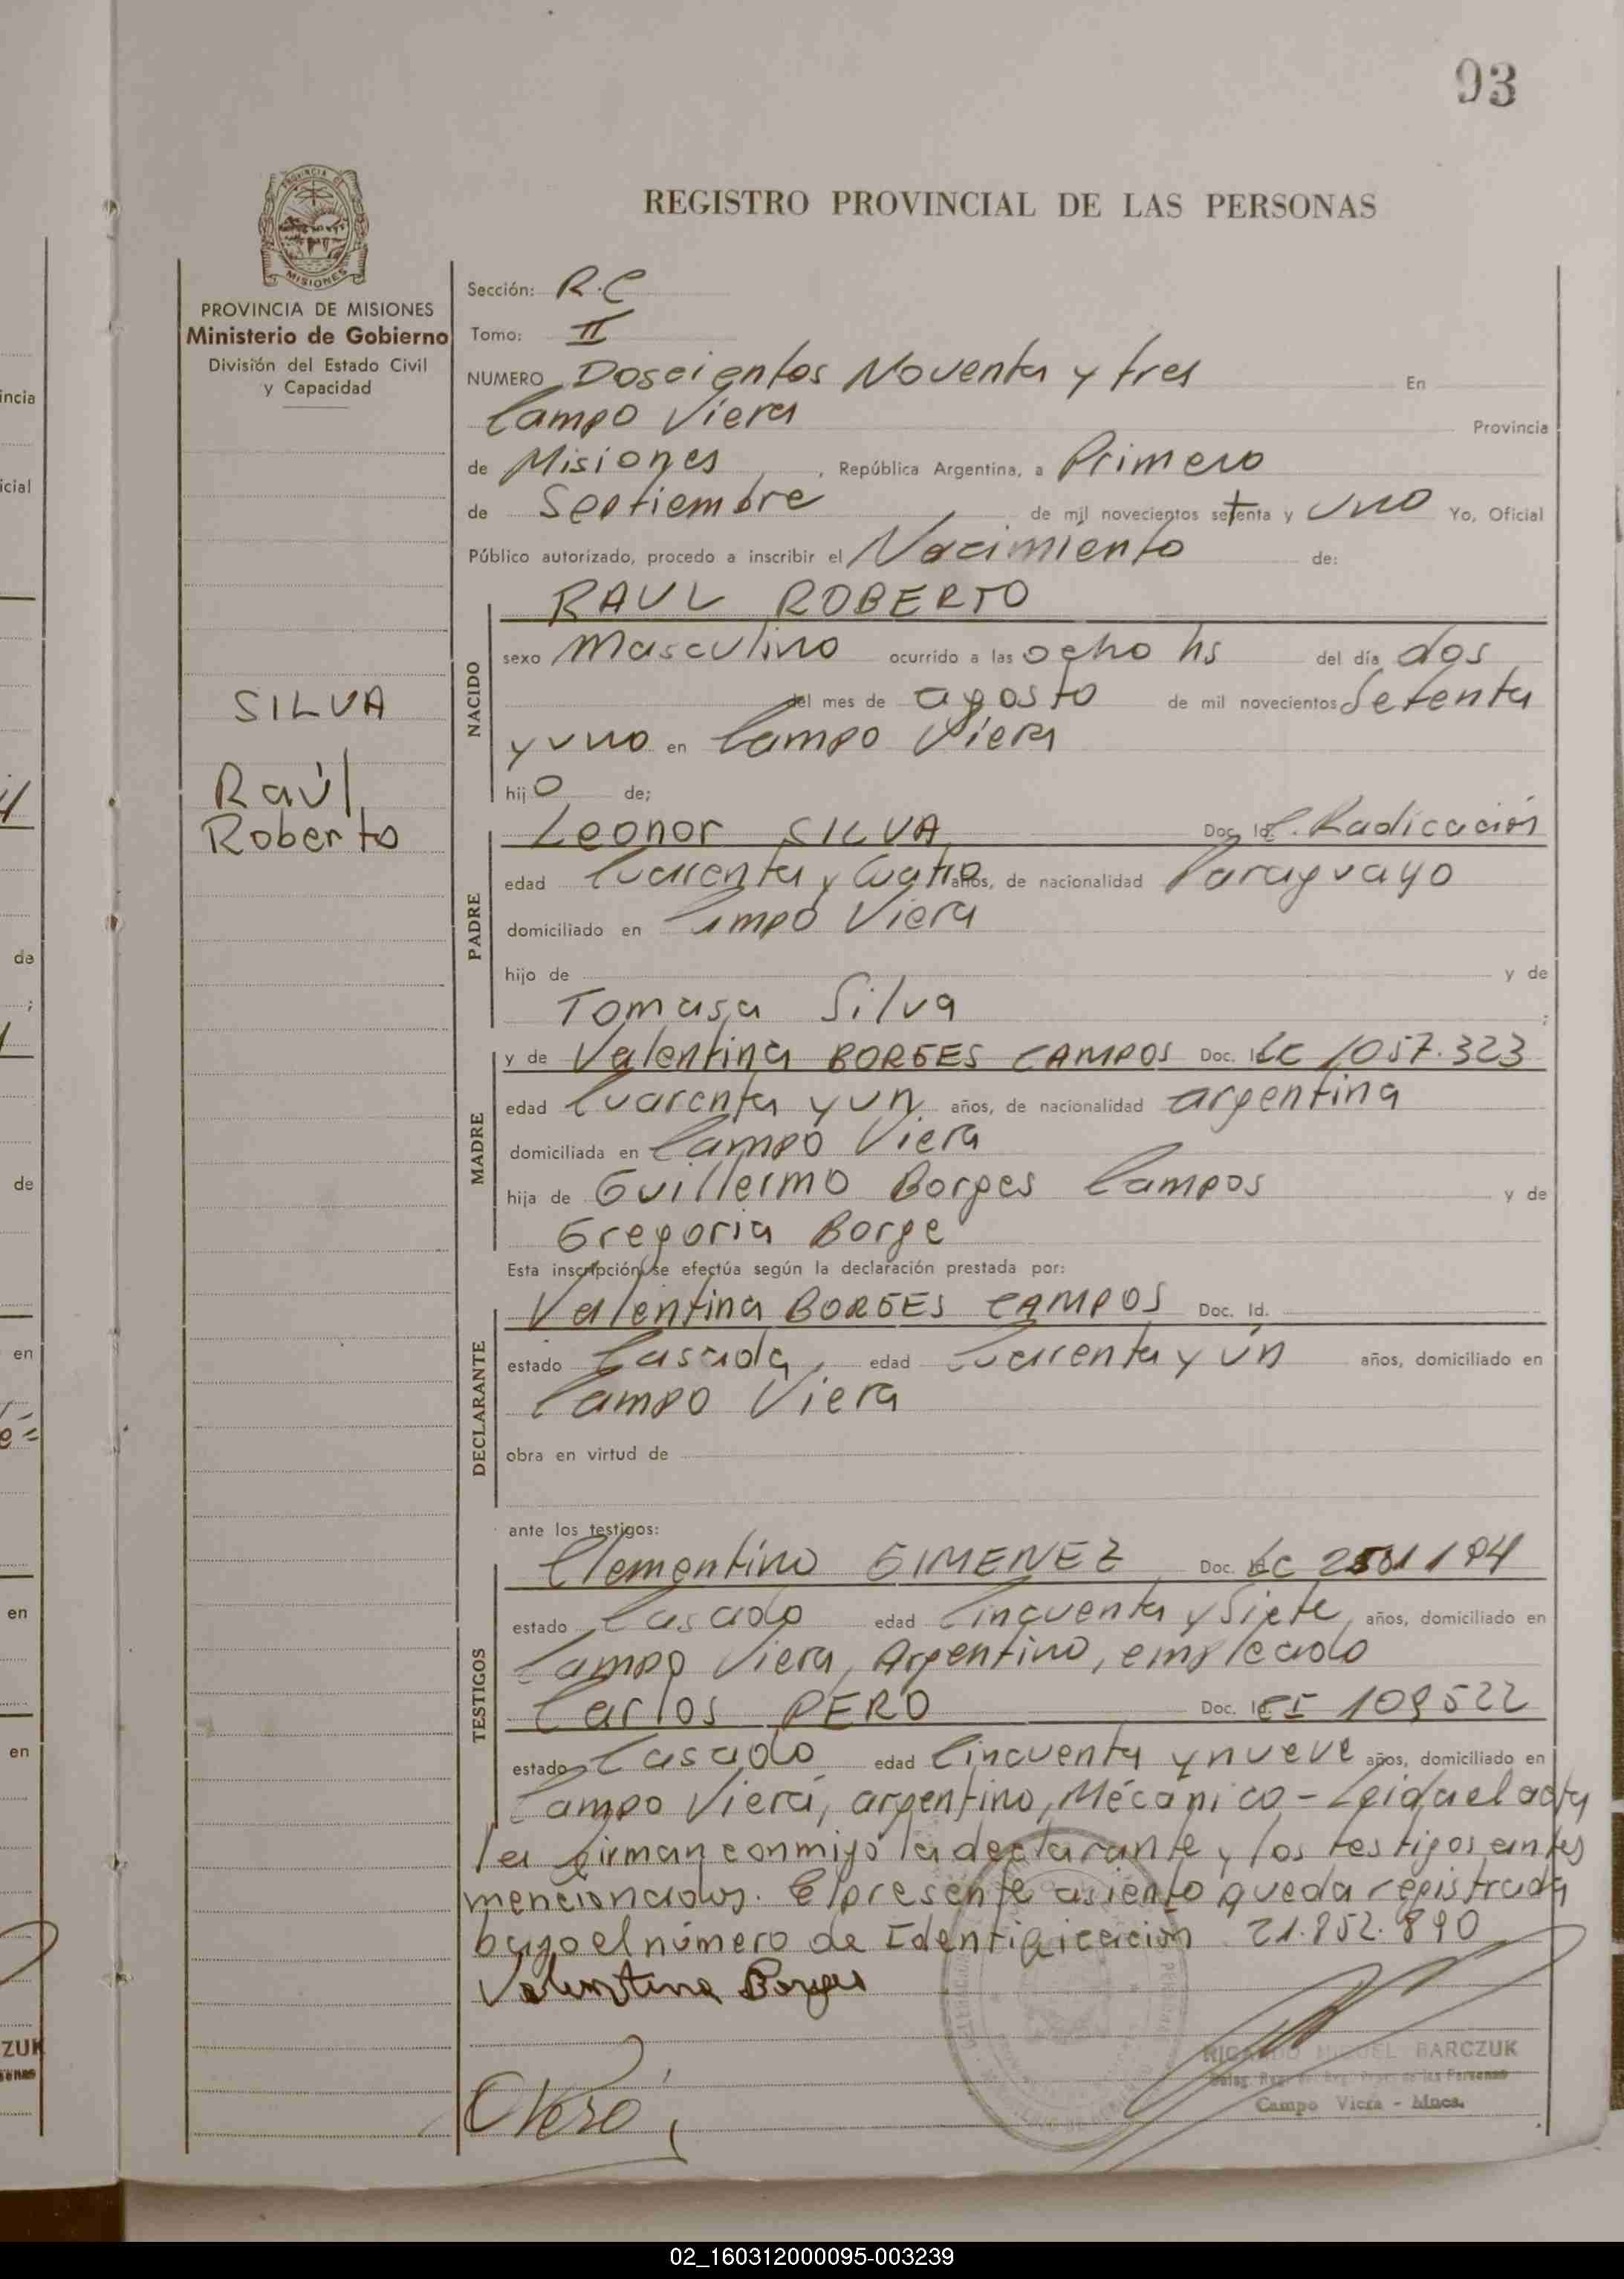 93
REGISTRO PROVINCIAL DE LAS PERSONAS
PROVINCIA DE
MISIONES
PROVINCIA DE MISIONES
Ministerio de Gobierno
División del Estado Civil
y Capacidad
SILVA
Raúl
Roberto
Sección: R.C
Tomo: II
NUMERO Doscientos Noventa y tres En
Campo Viera Provincia
de Misiones, República Argentina, a Primero
de Septiembre de mil novecientos setenta y uno Yo, Oficial
Público autorizado, procedo a inscribir el Nacimiento de:
RAUL ROBERTO
NACIDO
sexo Masculino ocurrido a las ocho hs del día dos
del mes de agosto de mil novecientos Setenta
y uno en Campo Viera
hijo de;
PADRE
Leonor SILVA Doc. Id. C. Radicación
edad Cuarenta y Cuatro años, de nacionalidad Paraguayo
domiciliado en Campo Viera
hijo de y de
Tomasa Silva ;
MADRE
y de Valentina BORGES CAMPOS Doc. Id. LC 1057.323
edad Cuarenta y un años, de nacionalidad argentina
domiciliada en Campo Viera
hija de Guillermo Borges Campos y de
Gregoria Borge
Esta inscripción se efectúa según la declaración prestada por:
DECLARANTE
Valentina BORGES CAMPOS Doc. Id.
estado Casada, edad Cuarenta y ún años, domiciliado en
Campo Viera
obra en virtud de
ante los testigos:
TESTIGOS
Clementino GIMENEZ Doc.
estado Casado edad Cincuenta y Siete, años, domiciliado en
Campo Viera, Argentino, empleado
Carlos PERO Doc. Id. CI 109522
estado Casado edad Cincuenta y nueve años, domiciliado en
Campo Viera, argentino, Mécánico - Leida el acta
la firman conmigo la declarante y los testigos antes
mencionados. El presente asiento queda registrada
bajo el número de Identificación 21.852.890
Valentina Borges
CPero
RICARDO MIGUEL BARCZUK
de las Personas
Campo Viera - Mnes.
incia
icial
de
;
de
en
en
en
ZUK
02_160312000095-003239